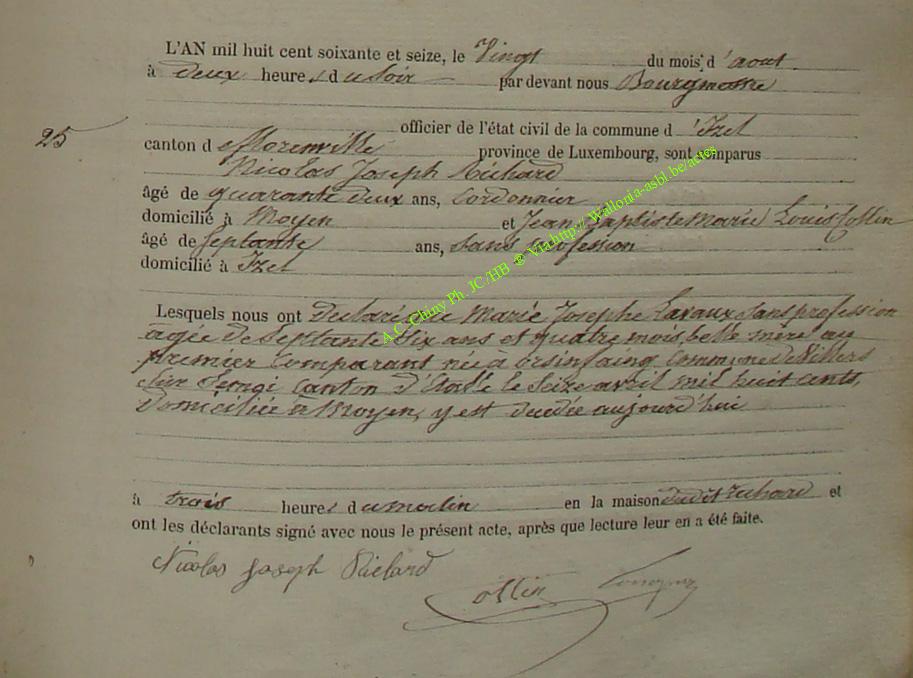 L'AN mil huit cent soixante et seize, le Vingt du mois d'aout
à deux heures du soir par devant nous Bourgmestre
officier de l'état civil de la commune d'Izel
25
canton de florenville province de Luxembourg, sont comparus
Nicolas Joseph Richard
âgé de quarante deux ans, Cordonnier
domicilié à Moyen et Jean Baptiste Marie Louis Collin
âgé de septante ans, sans profession
domicilié à Izel
A.C. Chiny Ph. JC/HB @ Via http// Wallonia-asbl.be/actes
Lesquels nous ont Déclaré que Marie Josephe Lavaux sans profession
agée de Septante Six ans et quatre mois, belle mère au
premier Comparant née à orsinfaing Commune de Villers
Sur Semoi Canton d'Etalle le Seize avril mil huit cents,
Domiciliée à Moyen, y est decedée aujourd'hui
à trois heures du matin en la maison dudit Richard et
ont les déclarants signé avec nous le présent acte, après que lecture leur en a été faite.
Nicolas Joseph Richard
Collin